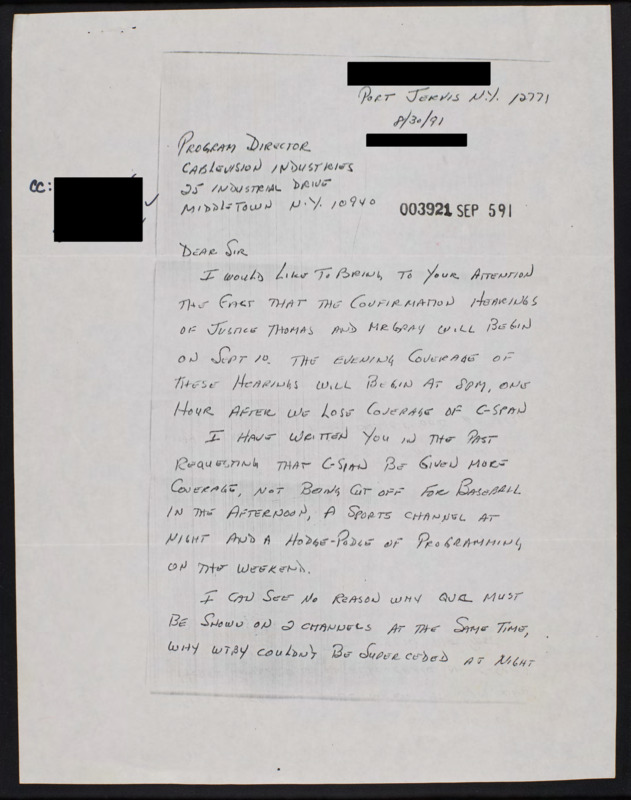 PORT JERVIS N.Y. 12771
8/30/91
PROGRAM DIRECTOR
CABLEVISION INDUSTRIES
CC:
25 INDUSTRIAL DRIVE
MIDDLETOWN N.Y. 10940
003921 SEP 591
DEAR SIR
I WOULD LIKE TO BRING TO YOUR ATTENTION
THE FACT THAT THE CONFIRMATION HEARINGS
OF JUSTICE THOMAS AND MR GRAY WILL BEGIN
ON SEPT 10. THE EVENING COVERAGE OF
THESE HEARINGS WILL BEGIN AT 8PM, ONE
HOUR AFTER WE LOSE COVERAGE OF C-SPAN
I HAVE WRITTEN YOU IN THE PAST
REQUESTING THAT C-SPAN BE GIVEN MORE
COVERAGE, NOT BEING CUT OFF FOR BASEBALL
IN THE AFTERNOON, A SPORTS CHANNEL AT
NIGHT AND A HODGE-PODGE OF PROGRAMMING
ON THE WEEKEND.
I CAN SEE NO REASON WHY MUST
BE SHOWN ON 2 CHANNELS AT THE SAME TIME,
WHY WTBY COULDN'T BE SUPERCEDED AT NIGHT